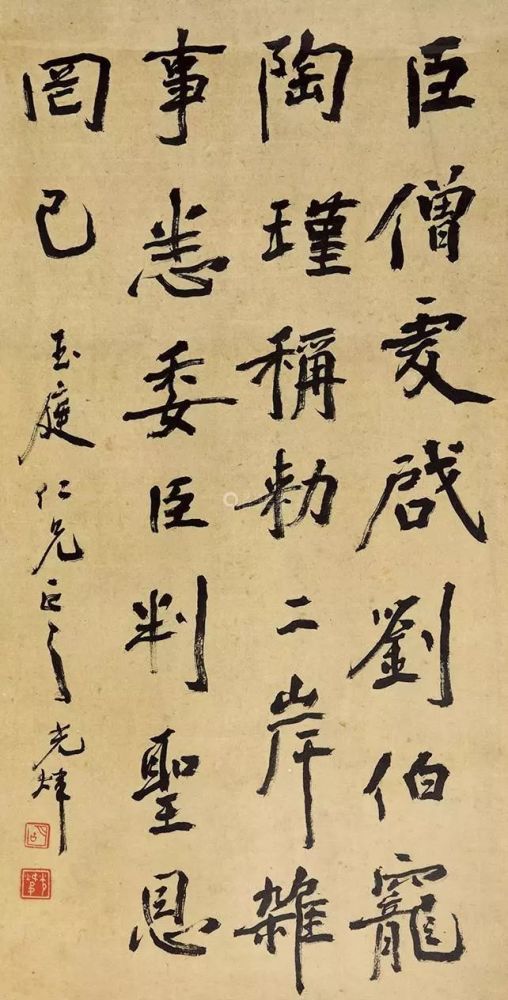 臣僧虔啓劉伯寵
陶瑾稱勅二岸雜
事悉委臣判聖恩
罔已
玉庭仁兄正之光煒